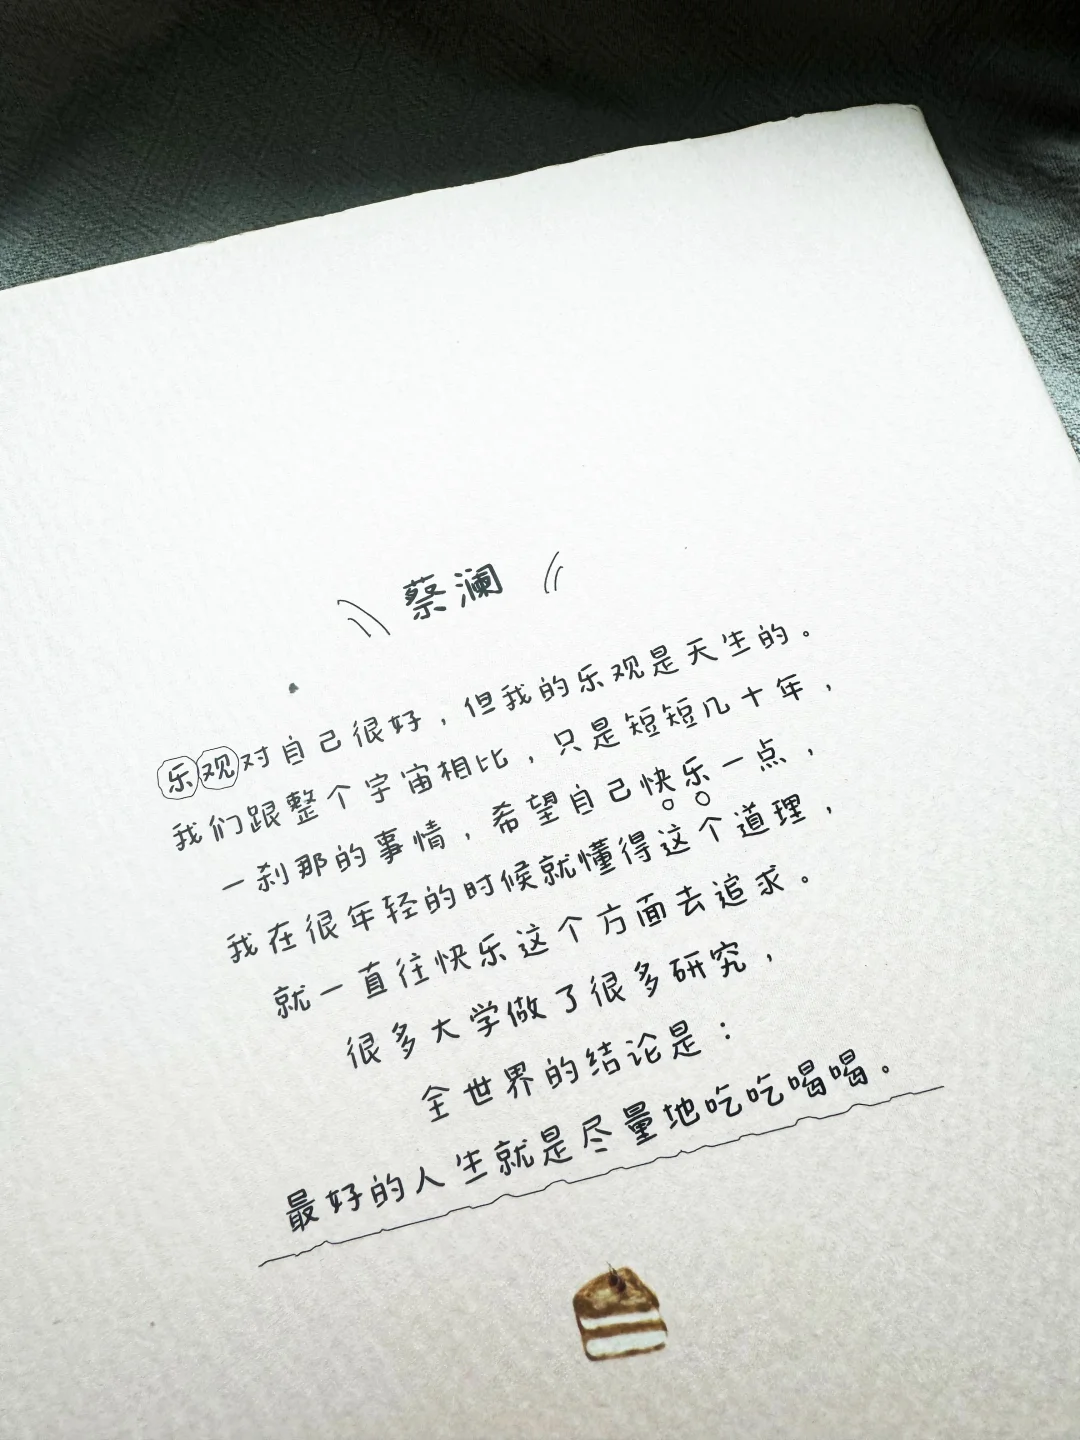 蔡澜
乐观对自己很好，但我的乐观是天生的。
我们跟整个宇宙相比，只是短短几十年，
一刹那的事情，希望自己快乐一点，
我在很年轻的时候就懂得这个道理，
就一直往快乐这个方面去追求。
很多大学做了很多研究，
全世界的结论是：
最好的人生就是尽量地吃吃喝喝。